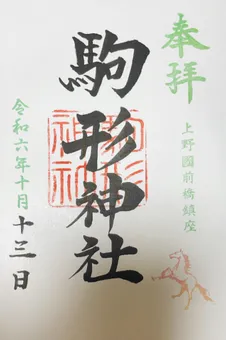 奉拝
上野國前橋鎮座
駒形神社
駒形神社
令和六年十月十三日